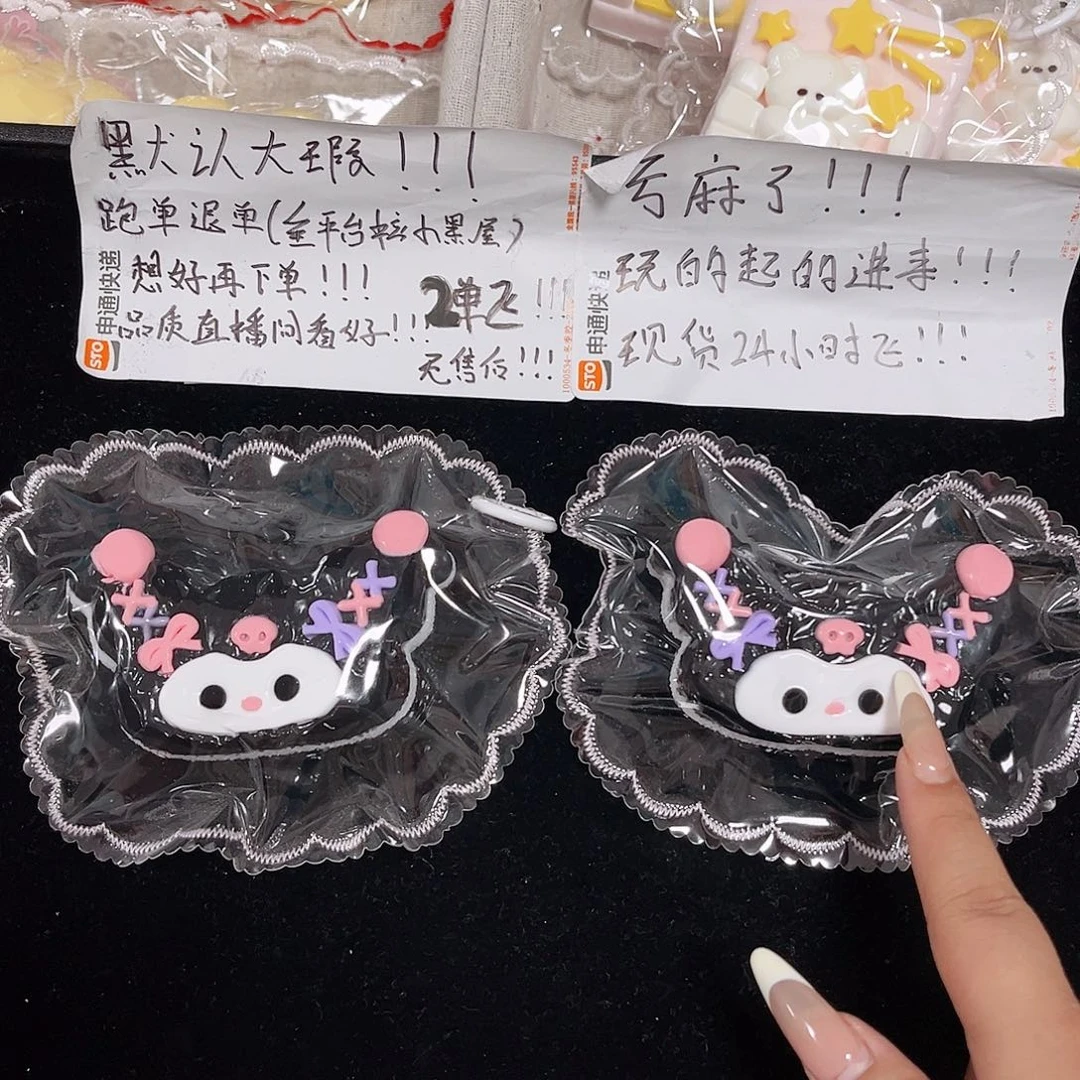 黑犬认大瑕！！！
跑单退单(全平台拉小黑屋)
想好再下单！！！
品质直播间看好！！！
2单飞！！！
无售后！！！
申通快递
STO
亏麻了！！！
玩的起的进来！！！
现货24小时飞！！！
申通快递
STO